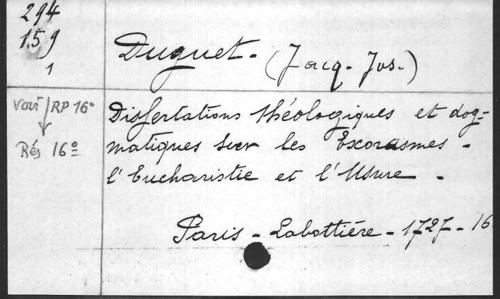 294
159
1
Duguet. (Jacq. Jos.)
Voir RP 16°
Rés 16°
Dissertations théologiques et dog=
matiques sur les Exorcismes -
l'Eucharistie et l'Usure -
Paris - Labottière - 1727 - 16